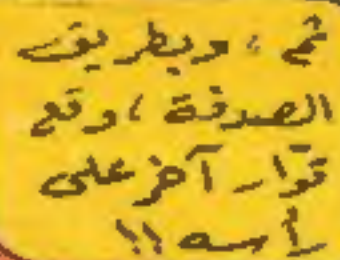 ثم ، وبطريق
الصدفة ، وقع
قوّار آخر على
رأسه !!